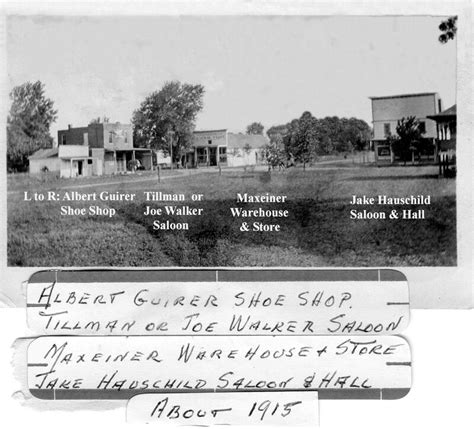 L to R: Albert Guirer
Shoe Shop
Tillman or
Joe Walker
Saloon
Maxeiner
Warehouse
& Store
Jake Hauschild
Saloon & Hall
ALBERT GUIRER SHOE SHOP.
TILLMAN OR JOE WALKER SALOON
MAXEINER WAREHOUSE & STORE
JAKE HAUSCHILD SALOON & HALL
ABOUT 1915